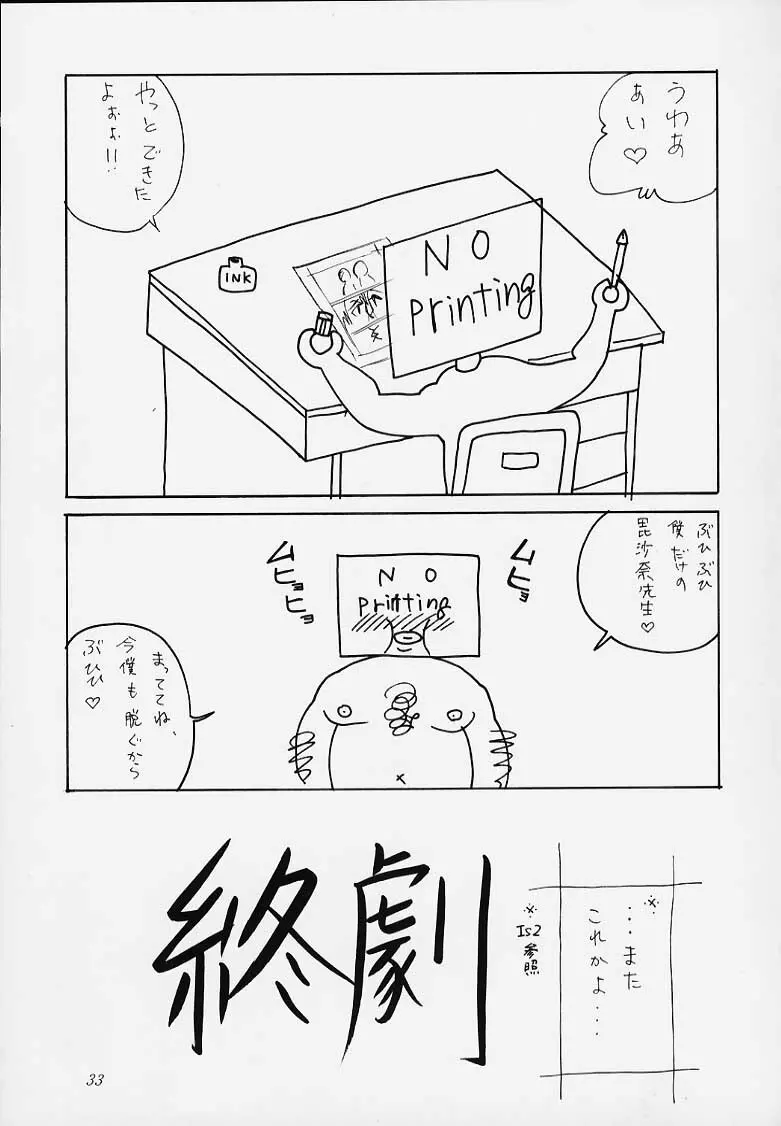 うわあ
あい♡
やっとできた
よぉぉ!!
INK
NO
Printing
ぶひぶひ
僕だけの
毘沙奈先生♡
ムヒョ
ムヒョヒョ
NO
Printing
まっててね、
今僕も脱ぐから
ぶひひ♡
終劇
※
…また
これかよ…
※
Is2
参照
33